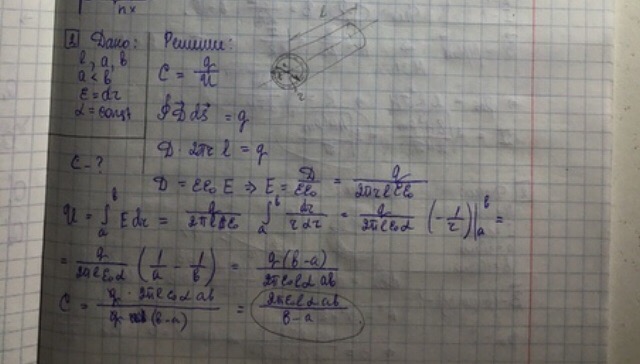 nx
3 Дано: Решение:
l, a, b
a < b
ε = αr
α = const
C - ?
C = q/U
∮D⃗dS⃗ = q
D · 2πr l = q
D = εε₀E ⇒ E = D/εε₀ = q/2πrlεε₀
U = ∫ₐᵇ Edr = q/2πlε₀ ∫ₐᵇ dr/rαr = q/2πlε₀α (-1/r)|ₐᵇ =
= q/2πlε₀α (1/a - 1/b) = q(b-a)/2πε₀lα ab
C = q · 2πlε₀α ab/q (b-a) = 2πε₀lα ab/b-a
l
r